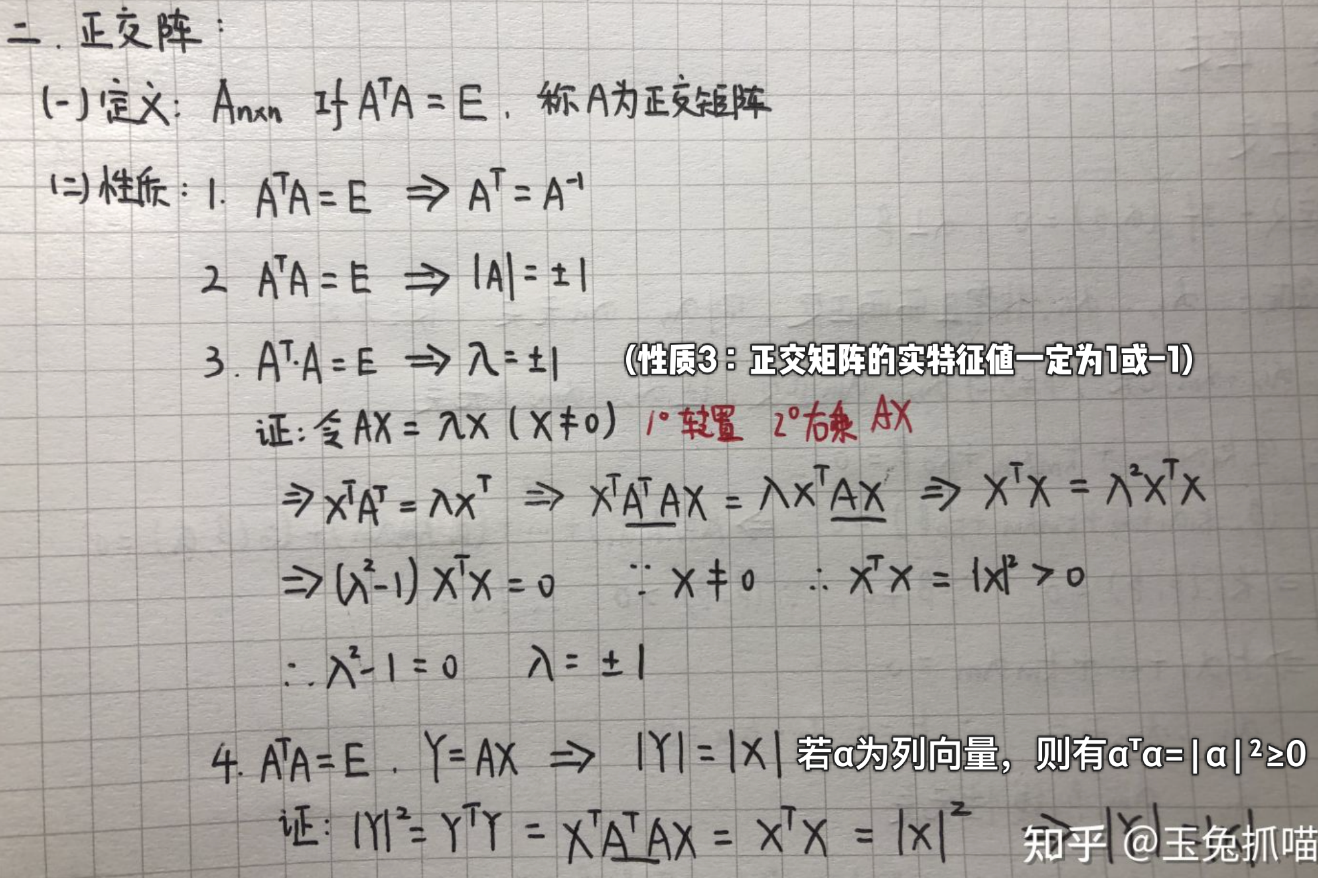 二. 正交阵:
(一)定义: Aₙₓₙ If AᵀA = E. 称A为正交矩阵
(二)性质: 1. AᵀA = E ⇒ Aᵀ = A⁻¹
2 AᵀA = E ⇒ |A| = ±1
3. Aᵀ·A = E ⇒ λ = ±1 (性质3:正交矩阵的实特征值一定为1或-1)
证: 令 AX = λX (X≠0) 1° 转置 2° 右乘 AX
⇒ XᵀAᵀ = λXᵀ ⇒ XᵀAᵀAX = λXᵀAX ⇒ XᵀX = λ²XᵀX
⇒ (λ²-1) XᵀX = 0 ∵ X≠0 ∴ XᵀX = |X|² > 0
∴ λ²-1 = 0 λ = ±1
4. AᵀA = E. Y = AX ⇒ |Y| = |X| 若α为列向量,则有αᵀα=|α|²≥0
证: |Y|² = YᵀY = XᵀAᵀAX = XᵀX = |X|² ⇒ |Y| = |X|
知乎 @玉兔抓喵